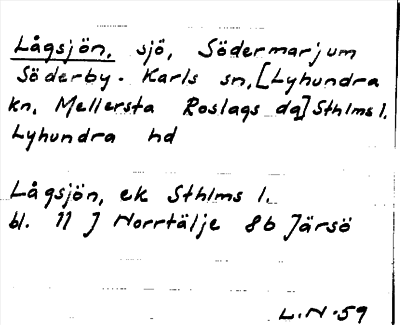 Lågsjön, sjö, Södermarjum
Söderby-Karls sn, [Lyhundra
kn, Mellersta Roslags dg] Sthlms l.
Lyhundra hd
Lågsjön, ek Sthlms l.
bl. 11 J Norrtälje 8b Järsö
L.N-59